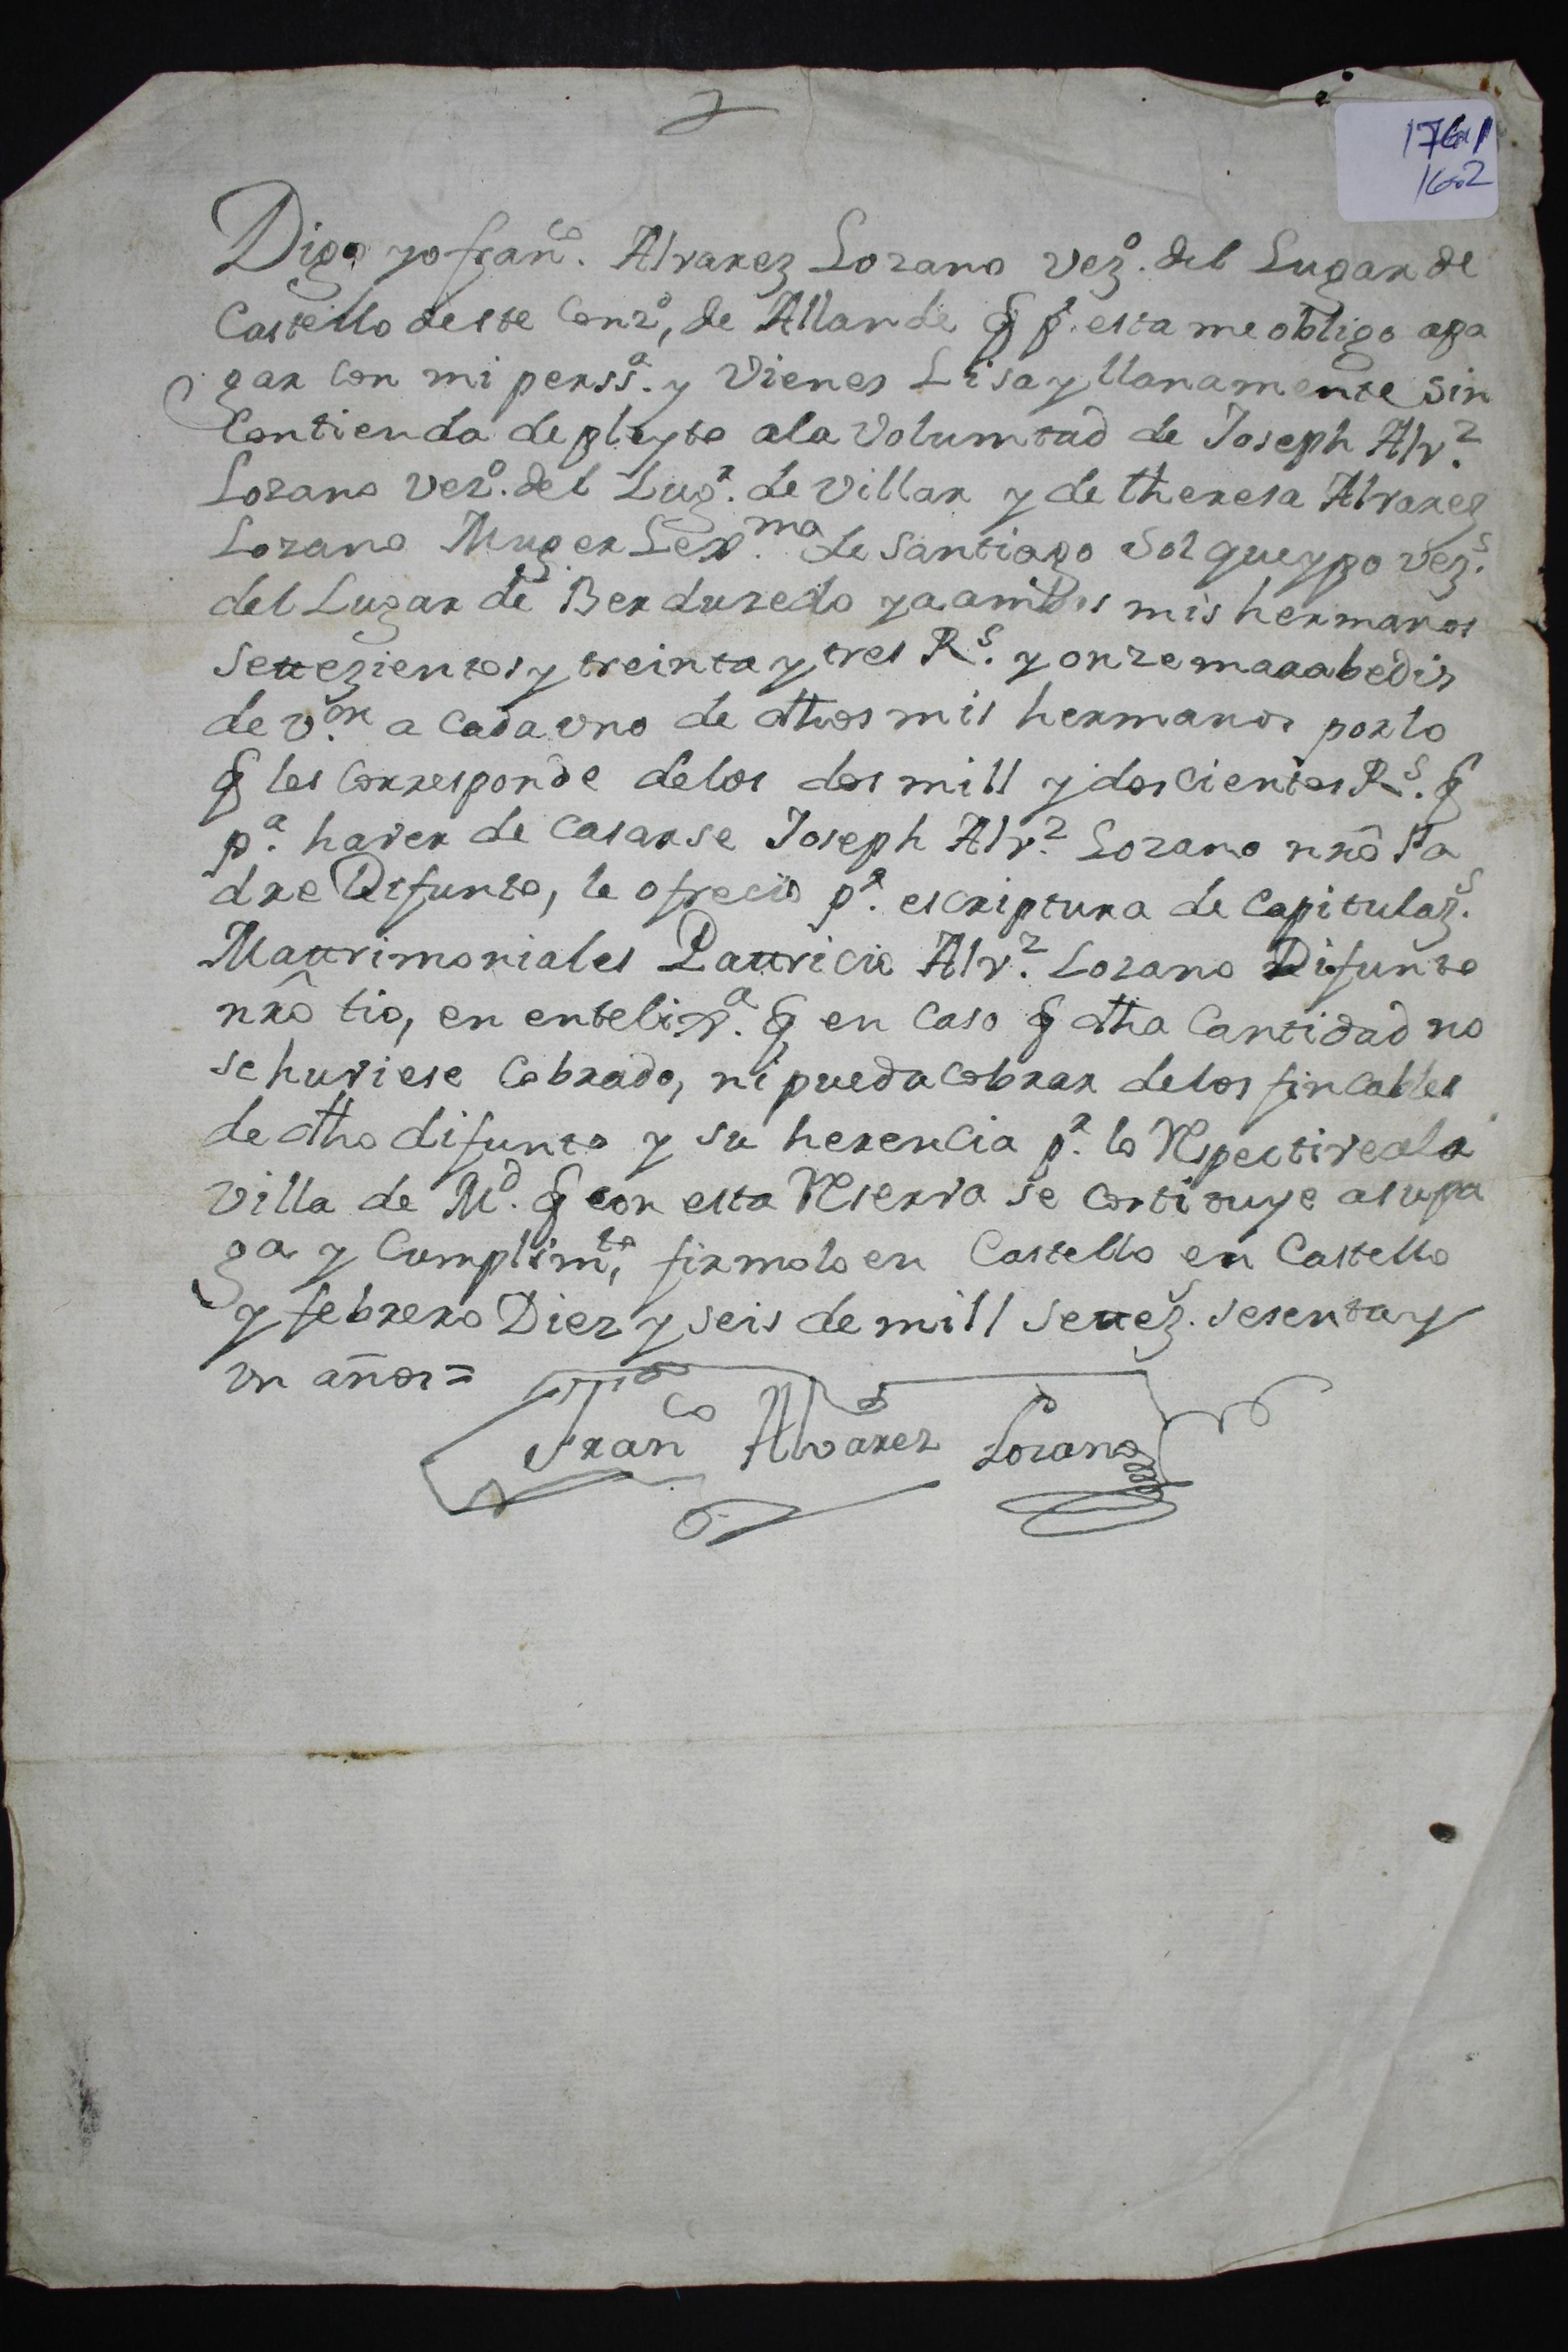 1761
1602
Digo yo fran.co Alvarez Lozano vez.o del Lugar de
Castello deste Conz.o, de Allande q p.r esta me obligo apa
gar con mi perss.a y Vienes Lisa y llanamente sin
Contienda de pleyto ala Voluntad de Joseph Alv.z
Lozano vez.o del Lug.r de Villar y de theresa Alvarez
Lozano Muger Lex.ma de Santiago Solqueypo vez.s
del Lugar de Berduzedo y a ambos mis hermanos
settezientos y treinta y tres R.s y onze marabedis
de v.on a cada vno de dthos mis hermanos por lo
q les Corresponde delos dos mill y doscientos R.s q
p.a haver de Casarse Joseph Alv.z Lozano nrô Pa
dre Difunto, le ofrecio p.r escriptura de Capitulaz.s
Mattrimoniales Pattricio Alv.z Lozano Difunto
nrô tio, en entelix.a q en Caso q dtha Cantidad no
se huviese Cobrado, ni pueda Cobrar delos fincables
de dtho difunto y su herencia p.r lo Respective ala
Villa de M.d q con esta Reserva se Contituye a su pa
ga y Cumplim.to, firmolo en Castello en Castello
y febrero Diez y seis de mill settez.s sesenta y
vn años=
Fran.co Alvarez Lozano